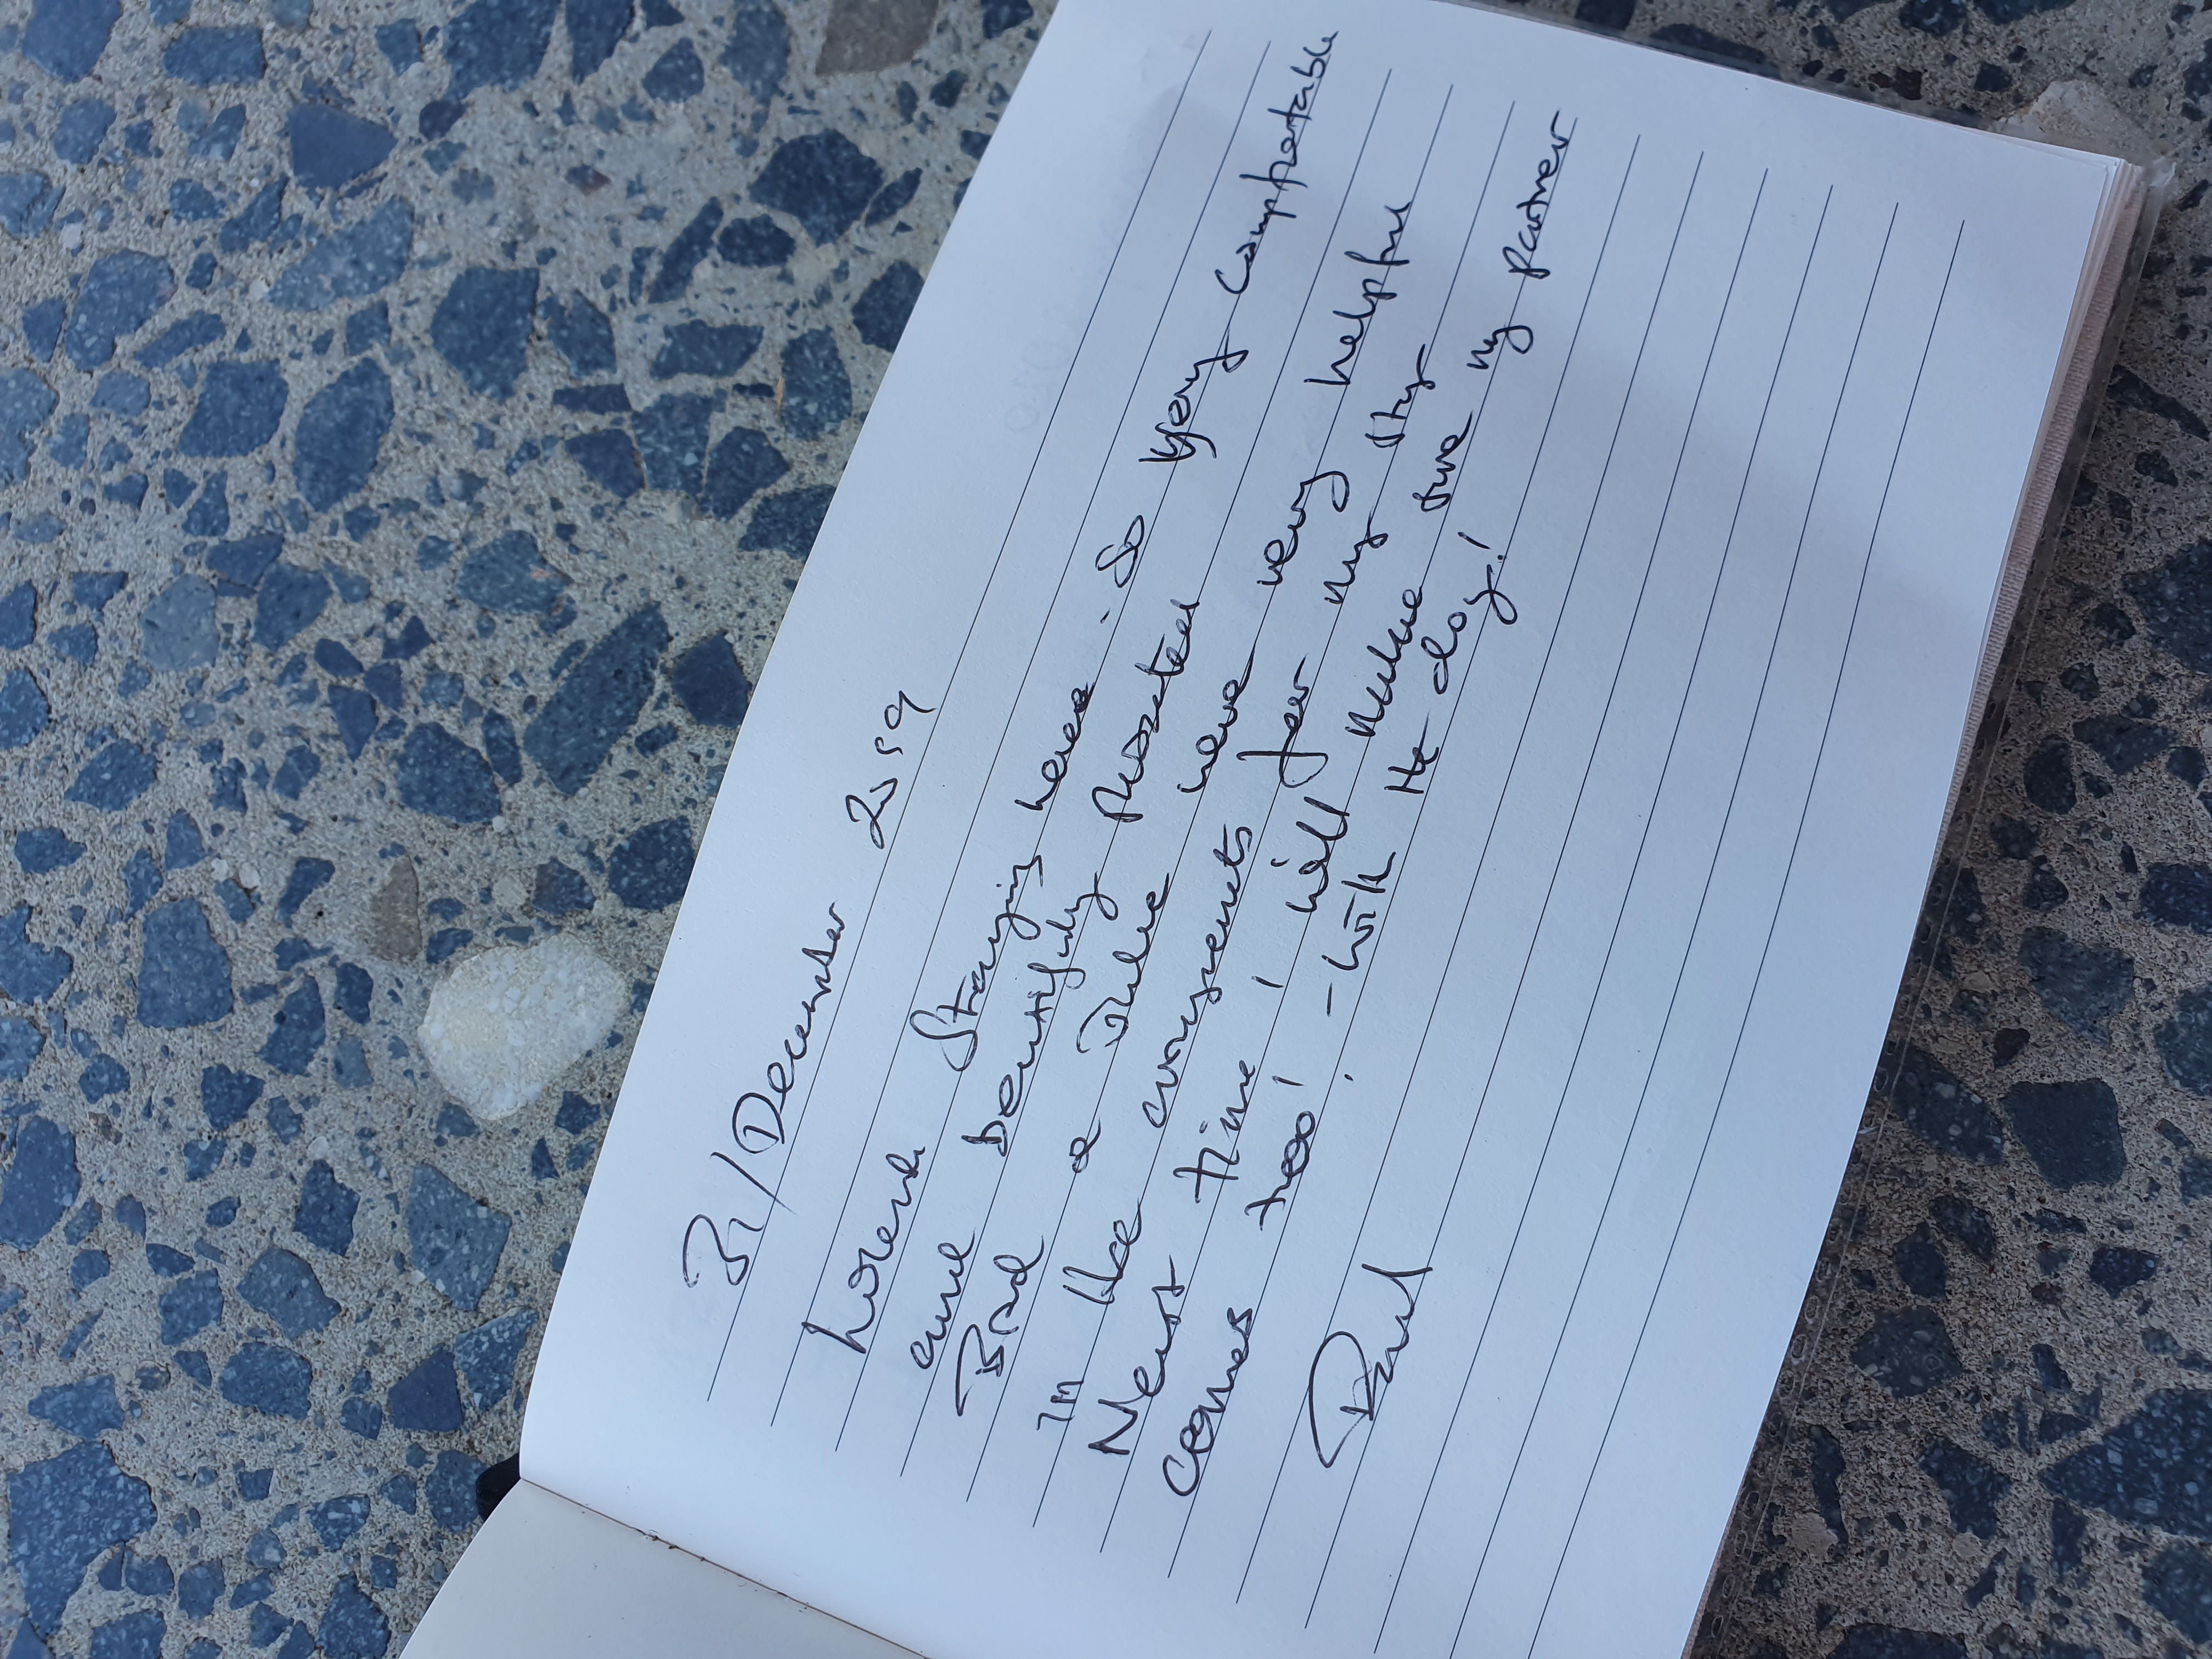 31/December 2019
Loved Staying here. So very comfortable
and beautifully located
Brad & Julie were very helpful
in the arrangements for my stay
Next time I will make sure my partner
comes too! - with the dog!